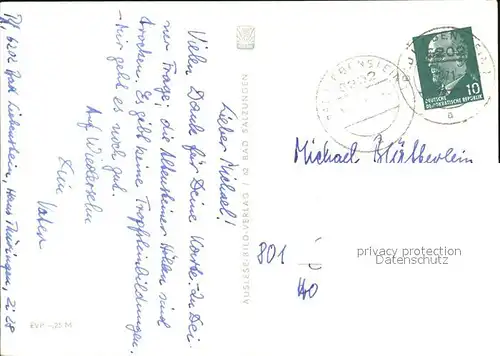 Lieber Michael!
Vielen Dank für Deine Karte. Zu Dei-
ner Frage, die Altensteiner Höhlen sind
trocken. Es gibt keine Tropfsteinbildungen.
- Mir geht es noch gut.
Auf Wiedersehn
Dein
Vater
6202 Bad Liebenstein, Haus Thüringen, Zi 28
EVP -,25 M
AUSLESE-BILD-VERLAG / 62 BAD SALZUNGEN
LIEBENSTEIN
6202
10
DEUTSCHE
DEMOKRATISCHE REPUBLIK
a
Michael
801
40
privacy protection
Datenschutz